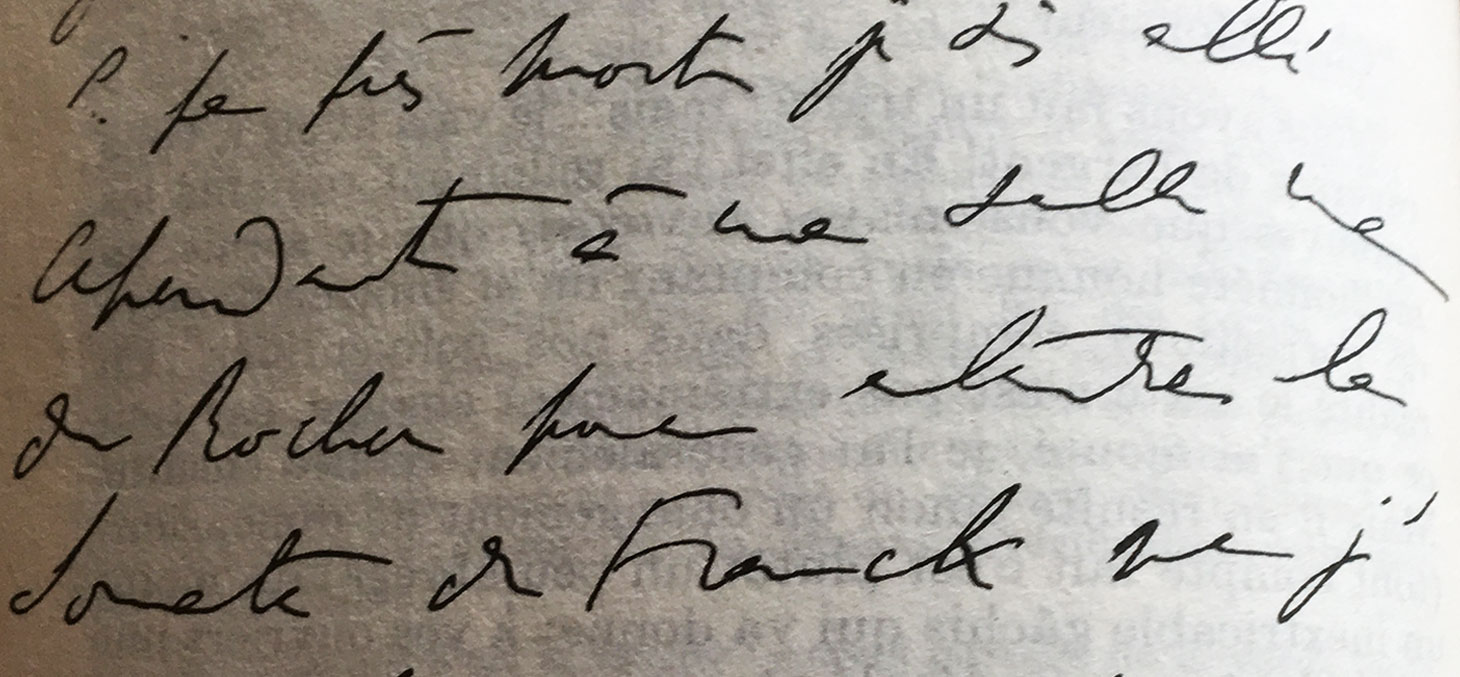 mort je suis allé
cependant à une salle rue
du Rocher pour entendre la
Sonate de Franck que j'